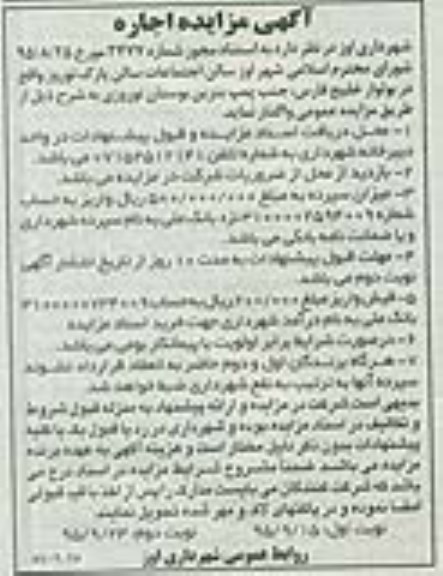 آگهی مزایده اجاره
شهرداری اوز در نظر دارد به استناد مجوز شماره ۳۳۷۷ مورخ ۹۵/۸/۲۵
شورای محترم اسلامی شهر اوز سالن اجتماعات سالن پارک نوروز واقع
در بولوار خلیج فارس، جنب پمپ بنزین بوستان نوروزی به شرح ذیل از
طریق مزایده عمومی واگذار نماید.
۱- محل دریافت اسناد مزایده و قبول پیشنهادات در واحد
دبیرخانه شهرداری به شماره تلفن می باشد.
۲- بازدید از محل از ضروریات شرکت در مزایده می باشد.
۳- میزان سپرده به مبلغ ۵۰۰/۰۰۰/۰۰۰ ریال واریز به حساب
شماره نزد بانک ملی به نام سپرده شهرداری
و یا ضمانت نامه بانکی می باشد.
۴- مهلت قبول پیشنهادات به مدت ۱۰ روز از تاریخ انتشار آگهی
نوبت دوم می باشد.
۵- فیش واریز مبلغ ۲۰۰/۰۰۰ ریال به حساب
بانک ملی به نام درآمد شهرداری جهت خرید اسناد مزایده
۶- در صورت شرایط برابر اولویت با پیمانکار بومی می باشد.
۷- هرگاه برندگان اول و دوم حاضر به انعقاد قرارداد نشوند
سپرده آنها به ترتیب به نفع شهرداری ضبط خواهد شد.
بدیهی است شرکت در مزایده و ارائه پیشنهاد به منزله قبول شروط
و تکالیف در اسناد مزایده بوده و شهرداری در رد یا قبول یک یا کلیه
پیشنهادات بدون ذکر دلیل مختار است و هزینه آگهی به عهده برنده
مزایده می باشد. ضمنا مشروح شرایط مزایده در اسناد درج می
باشد که شرکت کنندگان می بایست مدارک را پس از اخذ با قید قبولی
امضا نموده و در پاکتهای لاک و مهر شده تحویل نمایند.
نوبت اول: ۹۵/۹/۱۵ نوبت دوم: ۹۵/۹/۲۳
روابط عمومی شهرداری اوز